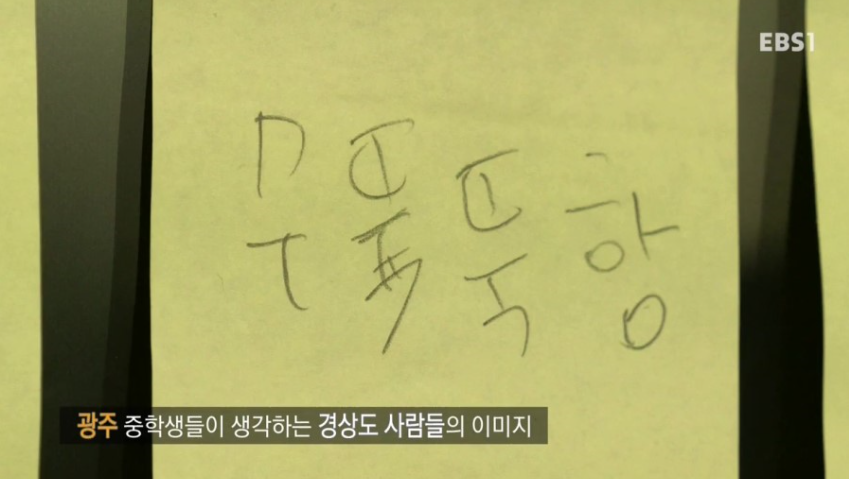 EBS1
무뚝뚝함
광주 중학생들이 생각하는 경상도 사람들의 이미지